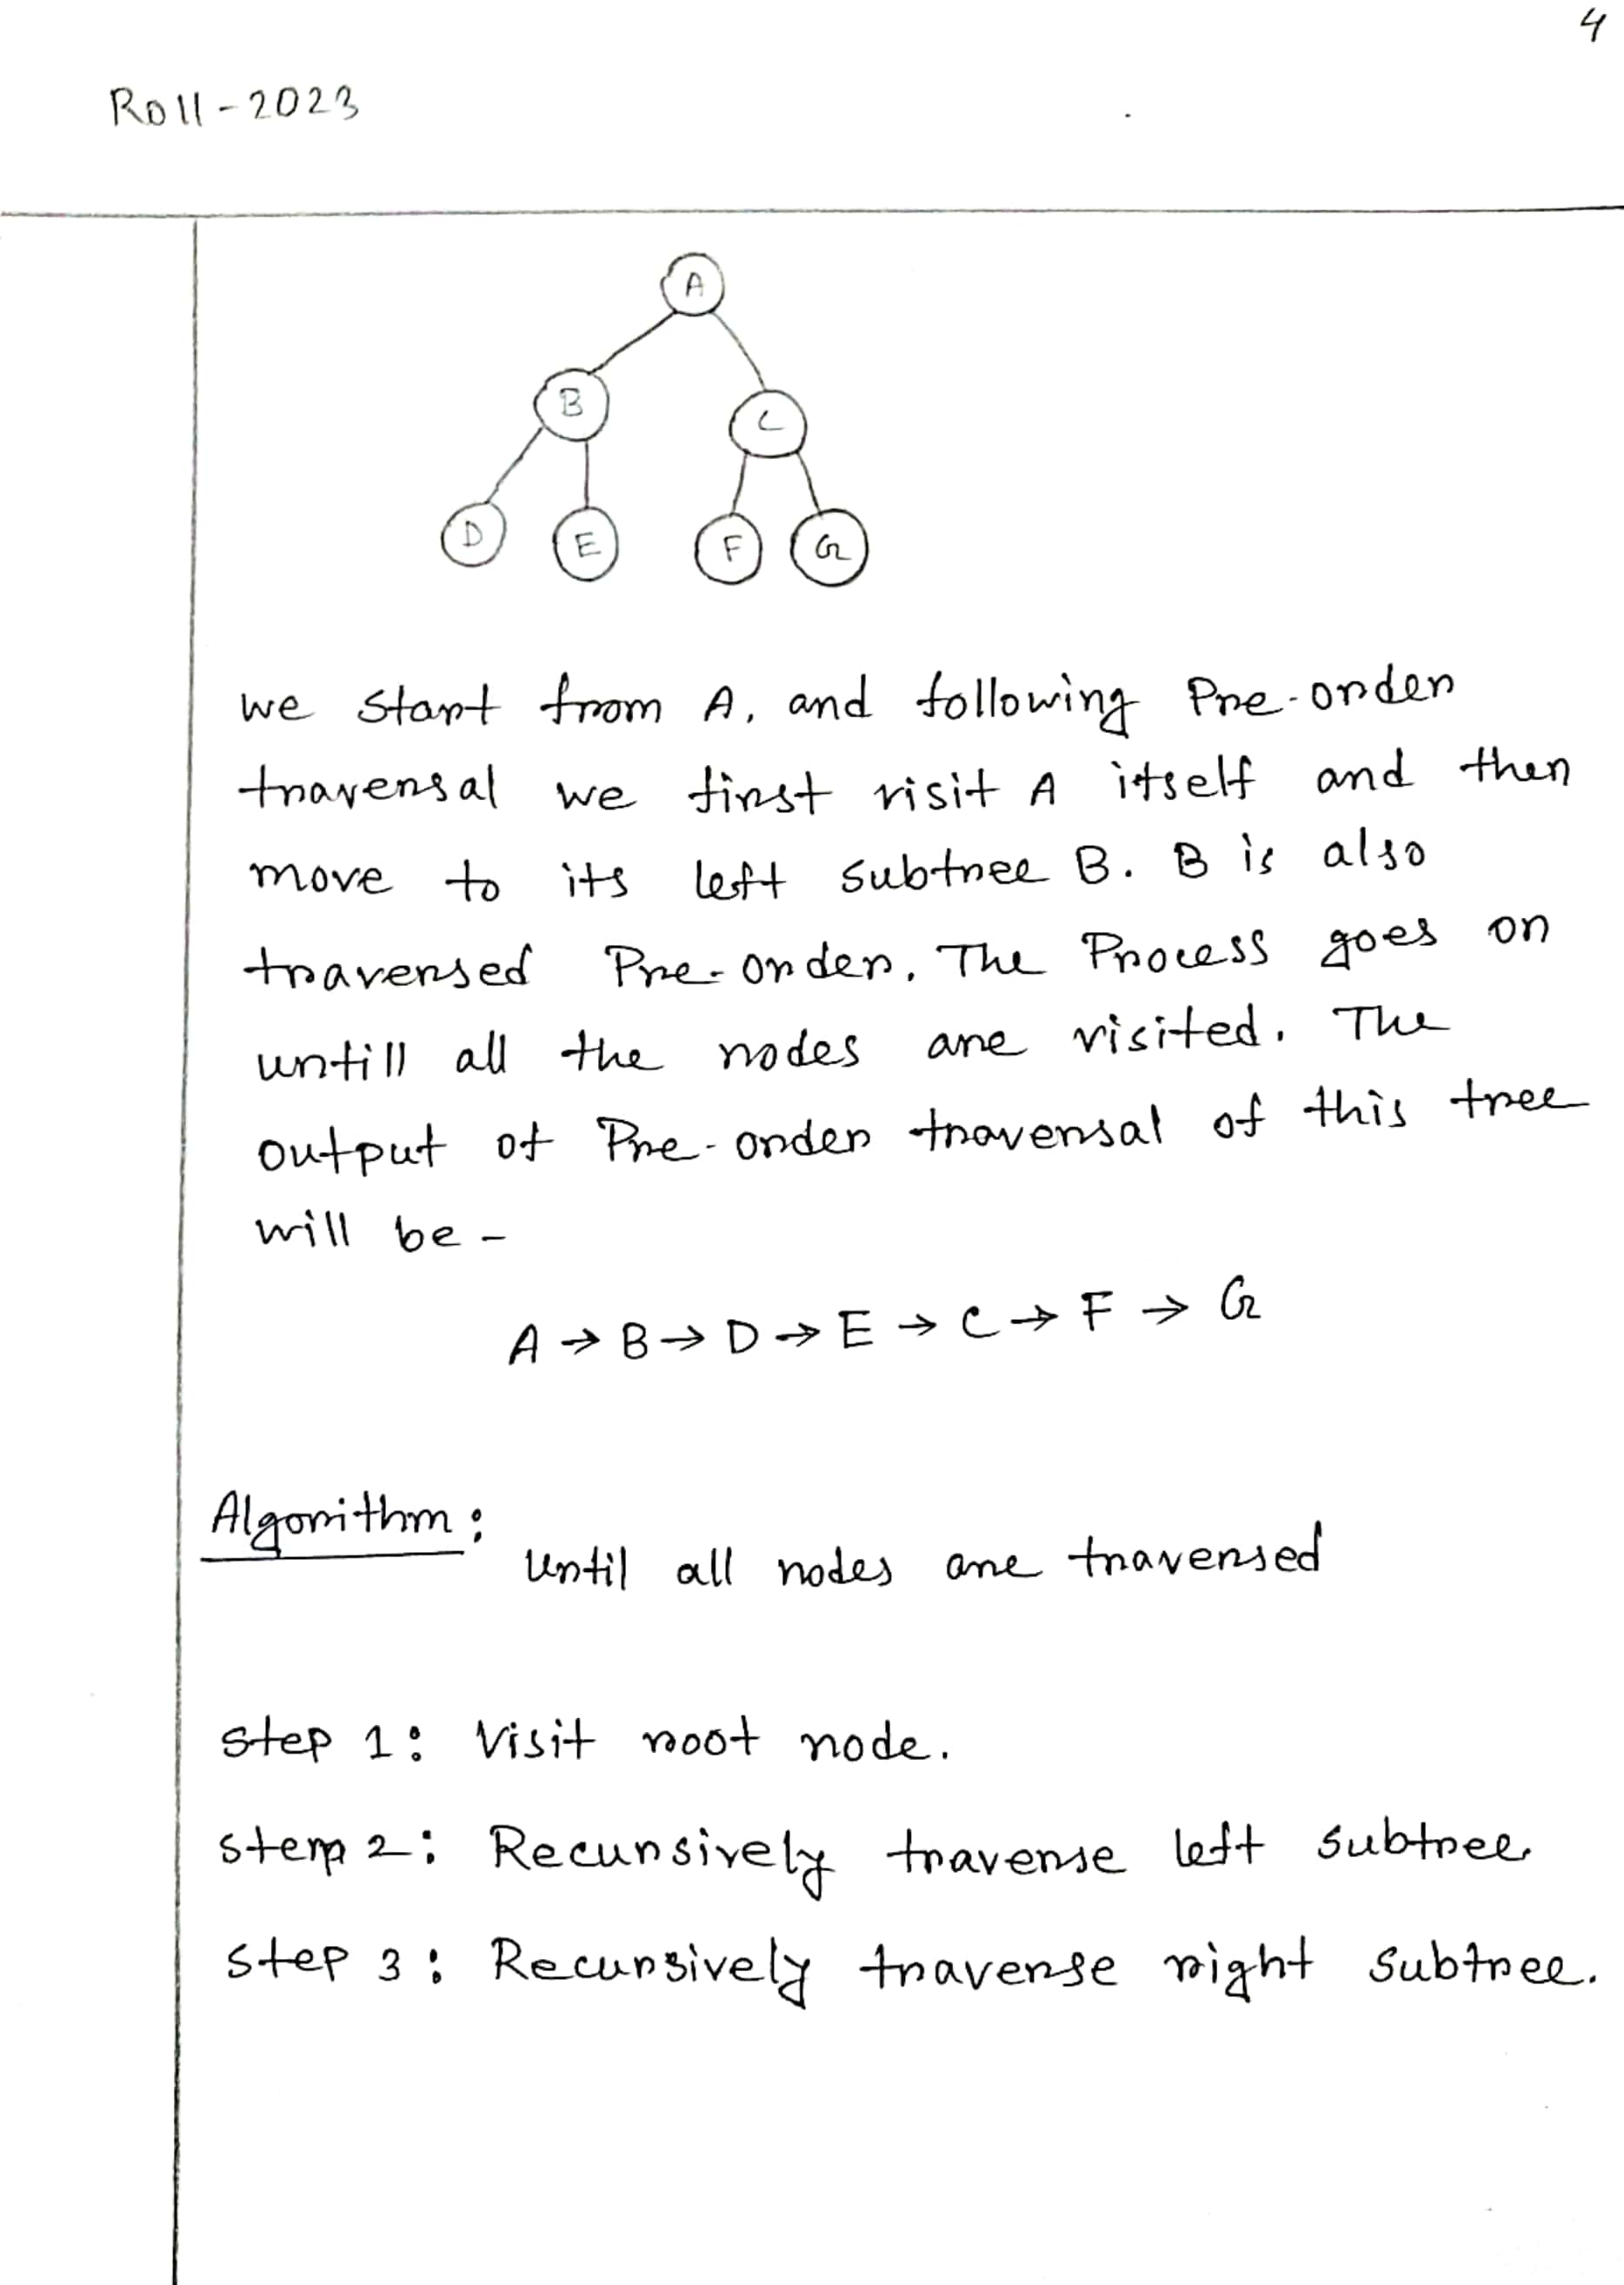 4
Roll-2023
A
B
C
D
E
F
G
we start from A, and following Pre-order
traversal we first visit A itself and then
move to its left subtree B. B is also
traversed Pre-order. The Process goes on
untill all the nodes are visited. The
output of Pre-order traversal of this tree
will be -
A → B → D → E → C → F → G
Algorithm:
Until all nodes are traversed
Step 1: Visit root node.
Stem 2: Recursively traverse left subtree.
Step 3: Recursively traverse right subtree.